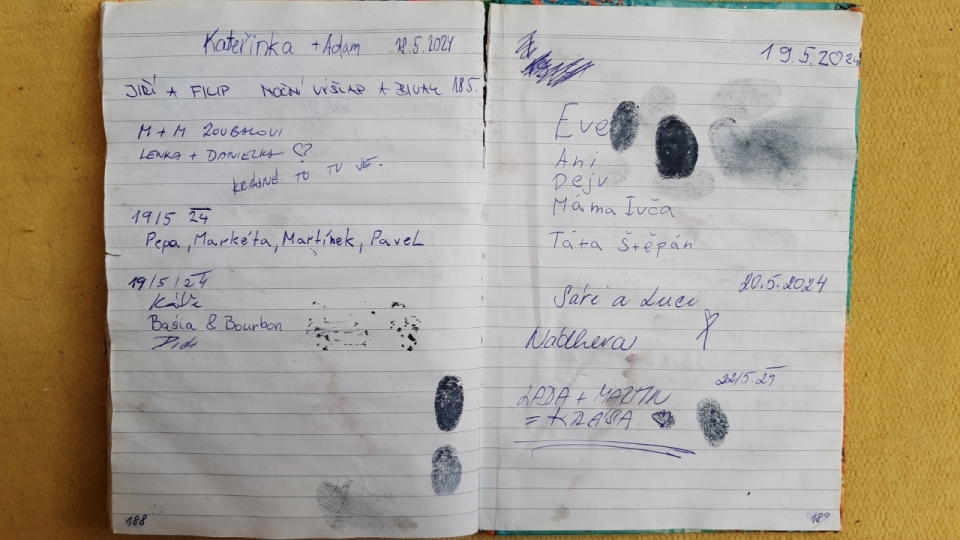 Kateřinka + Adam 12.5.2024
JIŘÍ + FILIP NOČNÍ VÝŠLAP + BIVAK 18.5.
M + M ZOUBALOVI
LENKA + DANIELKA ♡
KRÁSNĚ TO TU JE.
19/5 24
Pepa, Markéta, Martínek, Pavel
19/5/24
Basia & Bourbon
188
19.5.2024
Eve
Ani
Dejv
Máma Ivča
Táta Štěpán
20.5.2024
Sári a Luci
Nádhera
22/5.24
LADA + MARTIN
= KRÁSA
189